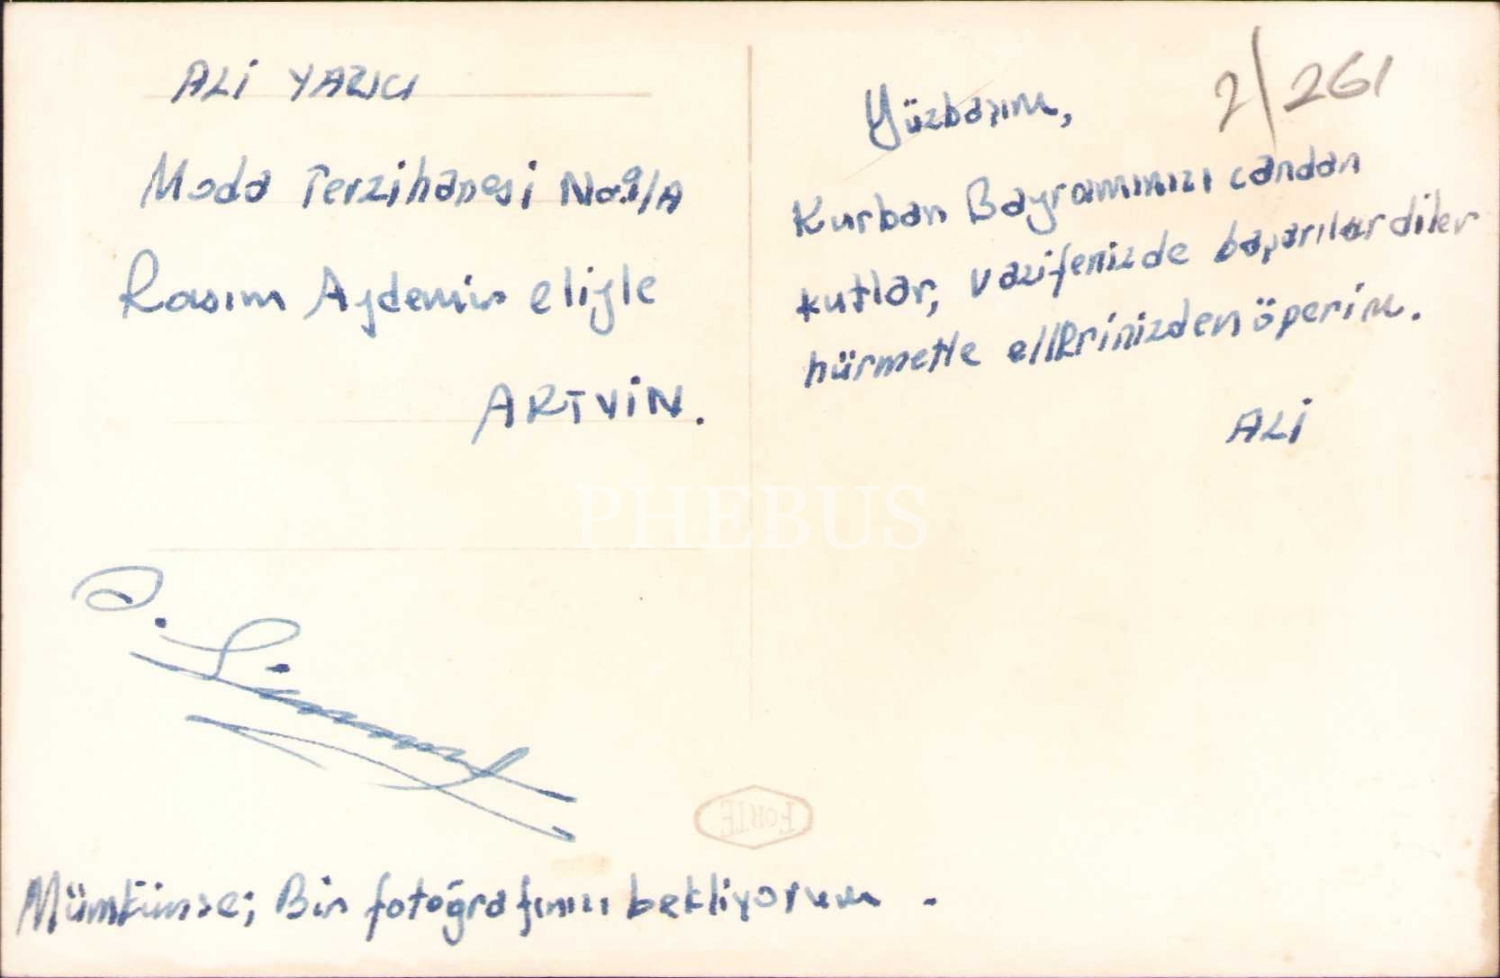 ALİ YAZICI
Moda Terzihanesi No.9/A
Rasım Aydemir eliyle
ARTVİN.
2/261
Yüzbaşım,
Kurban Bayramınızı candan
kutlar, vazifenizde başarılar diler
hürmetle ellerinizden öperim.
ALİ
PHEBUS
FORTE
Mümkünse; Bir fotoğrafınızı bekliyorum.